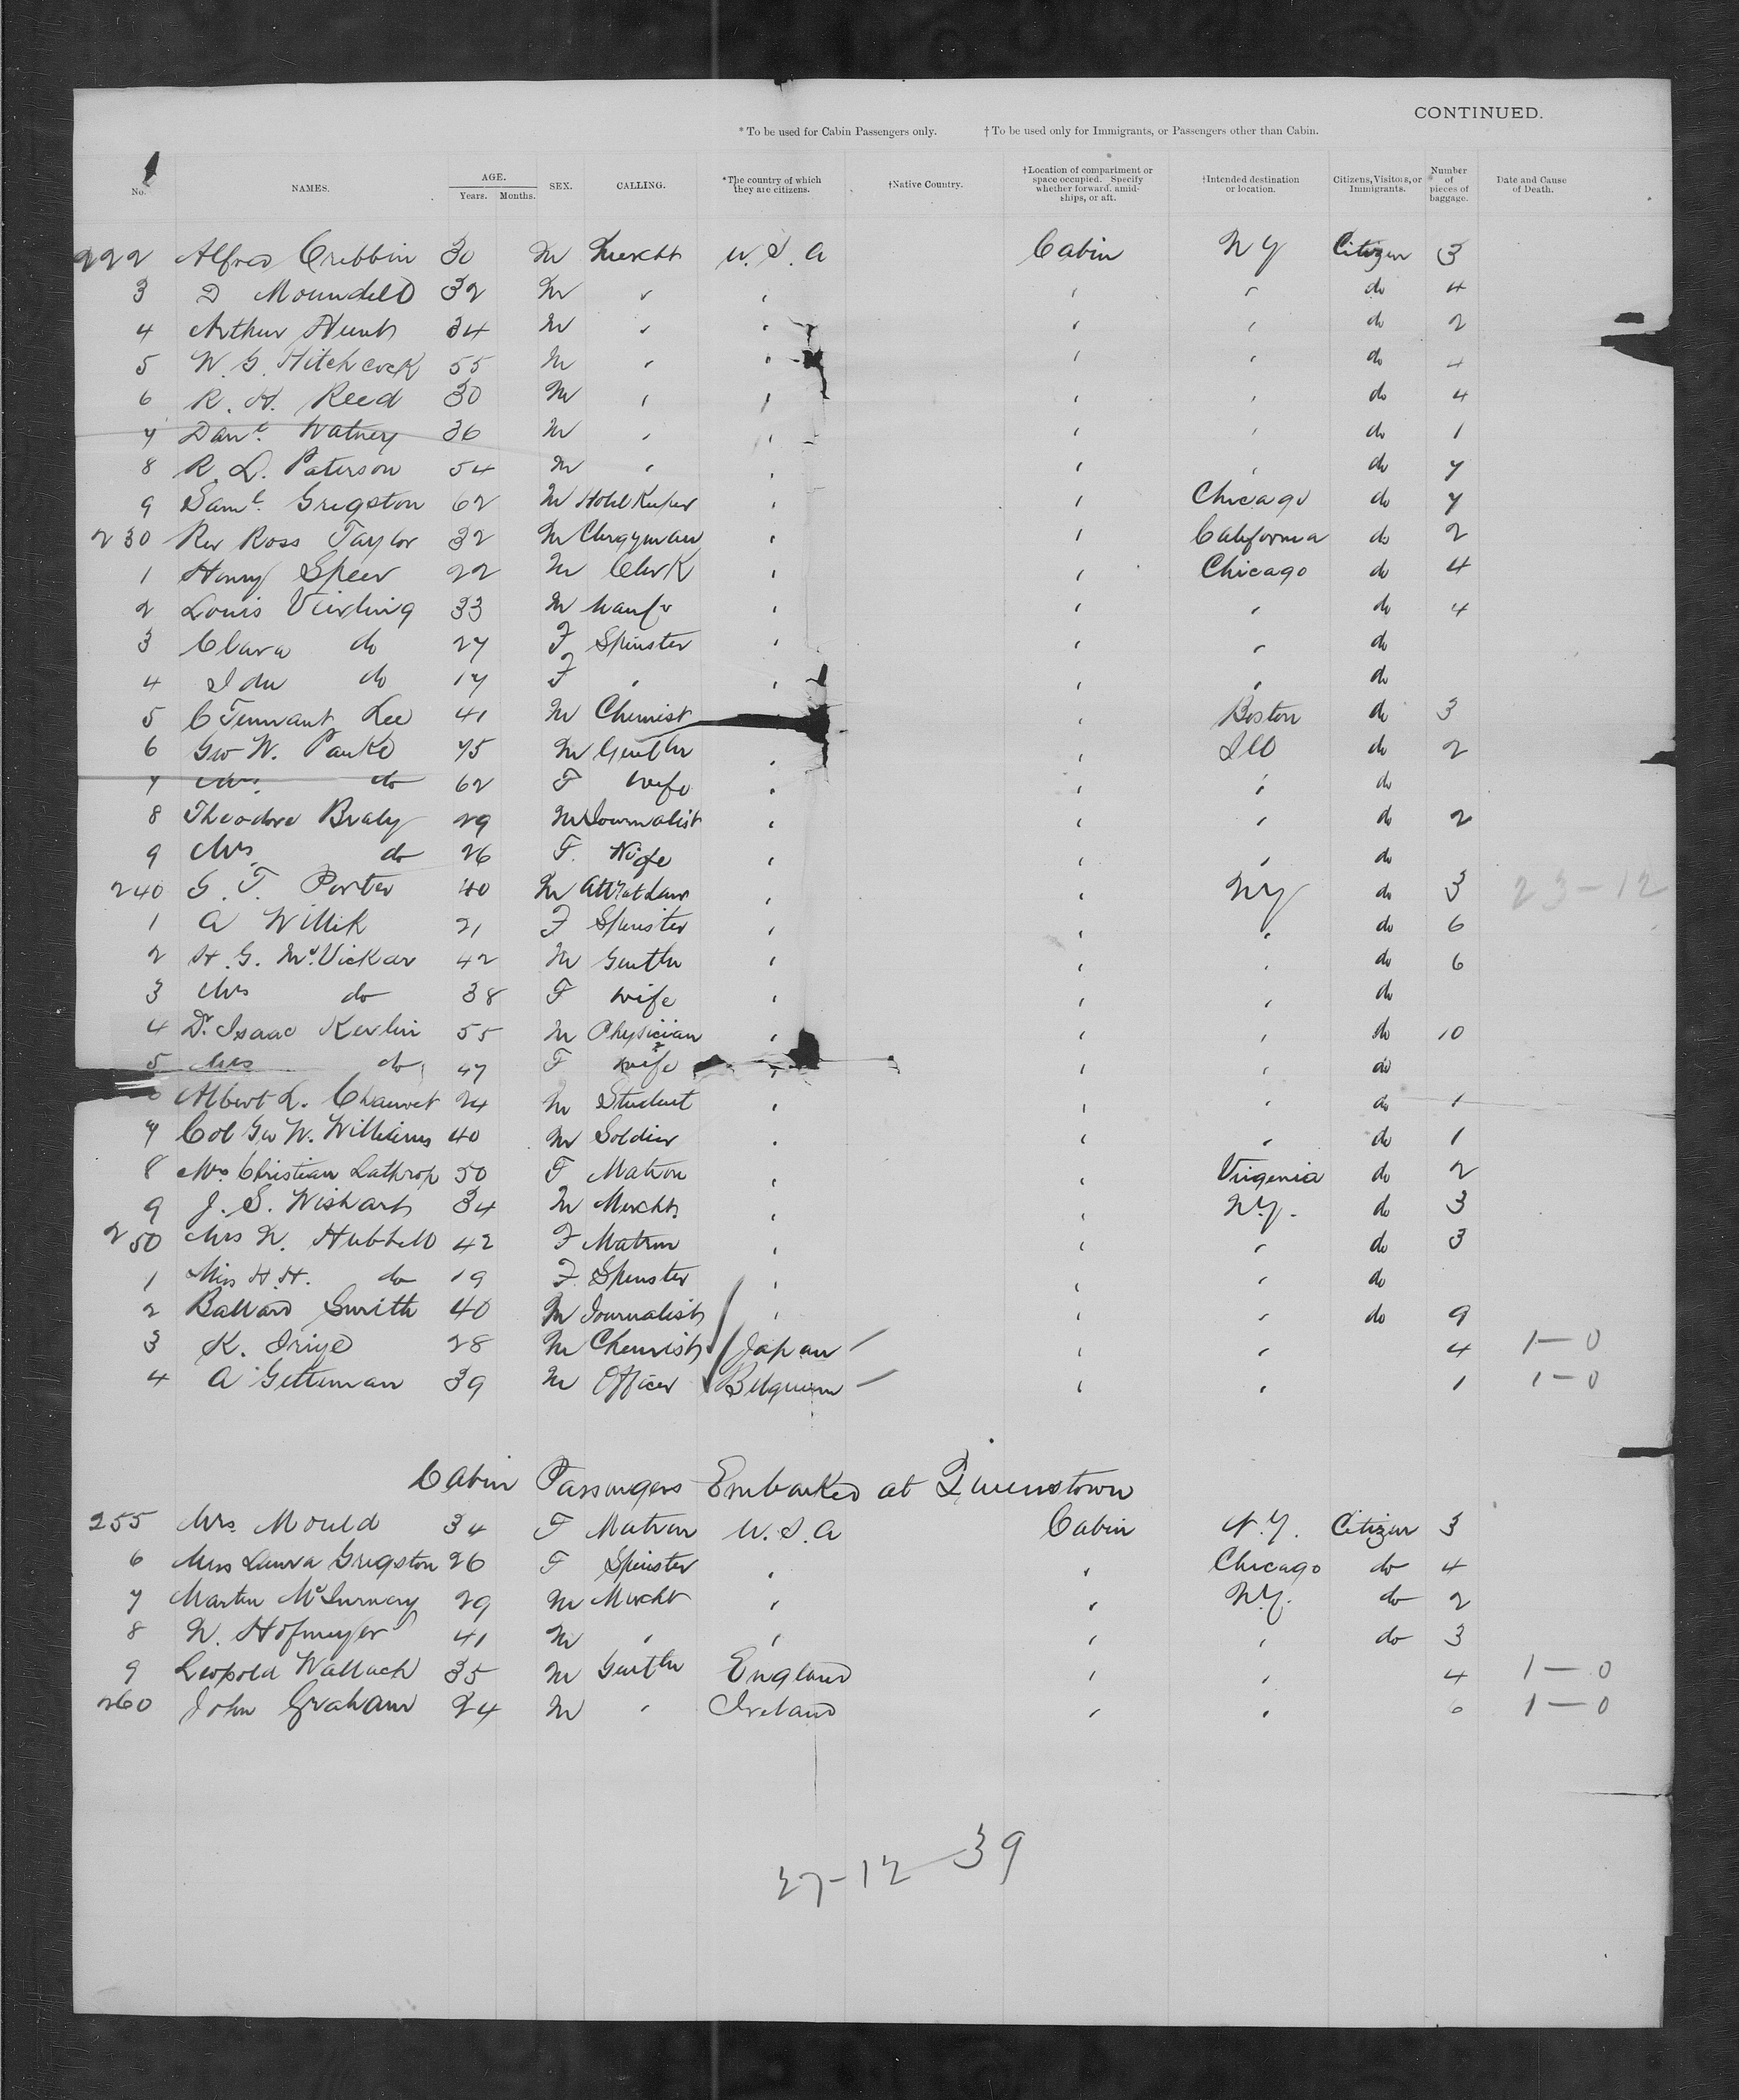 CONTINUED.
* To be used for Cabin Passengers only. † To be used only for Immigrants, or Passengers other than Cabin.
No. NAMES. AGE. Years. Months. SEX. CALLING. *The country of which they are citizens. †Native Country. †Location of compartment or space occupied. Specify whether forward, amidships, or aft. †Intended destination or location. Citizens, Visitors, or Immigrants. Number of pieces of baggage. Date and Cause of Death.
222 Alfred Cribbin 30 M Mercht U.S.A Cabin NY Citizen 3
3 D 32 M " " " " do 4
4 Arthur Hunt 34 M " " " " do 2
5 W. G. Hitchcock 55 M " " " " do 4
6 R. H. Reed 30 M " " " " do 4
7 Danl. Watney 36 M " " " " do 1
8 R. L. Paterson 54 M " " " " do 7
9 Saml. Gregston 62 M Hotel Keeper " " Chicago do 7
230 Rev Ross Taylor 32 M Clergyman " " California do 2
1 Henry Speer 22 M Clerk " " Chicago do 4
2 Louis Vierling 33 M Manfr " " " do 4
3 Clara do 27 F Spinster " " " do
4 Ida do 17 F " " " " do
5 C Tennant Lee 41 M Chemist " Boston do 3
6 Geo W. 75 M Gentln " " Ill do 2
7 Mrs. do 62 F Wife " " " do
8 Theodore Braly 29 M Journalist " " " do 2
9 Mrs. do 26 F. Wife " " " do
240 G. T. Porter 40 M Atty at Law " " NY do 3 23-12
1 A Willik 21 F Spinster " " " do 6
2 H. G. McVickar 42 M Gentln " " " do 6
3 Mrs do 38 F Wife " " " do
4 Dr. Isaac Kerlin 55 M Physician " " do 10
5 Mrs do 47 F Wife " " " do
6 Albert L. Chauvet 24 M Student " " " do 1
7 Col Geo W. Williams 40 M Soldier " " " do 1
8 Mrs Christian Lathrop 50 F Matron " " Virginia do 2
9 J. S. Wishart 34 M Mercht. " " N.Y. do 3
250 Mrs N. Hubbell 42 F Matron " " " do 3
1 Miss H. H. do 19 F. Spinster " " " do
2 Ballard Smith 40 M Journalist " " " do 9
3 K. Iriye 28 M Chemist Japan " " 4 1-0
4 A Getteman 39 M Officer Belguium " " 1 1-0
Cabin Passengers Embarked at Queenstown
255 Mrs. Mould 34 F Matron U.S.A Cabin N.Y. Citizen 3
6 Miss Laura Gregston 26 F Spinster " " Chicago do 4
7 Martin McInerney 29 M Mercht " " N.Y. do 2
8 N. Hofmeyer 41 M " " " " do 3
9 Leopold Wallach 35 M Gentln England " " 4 1-0
260 John Graham 24 M " Ireland " " 6 1-0
27-12-39